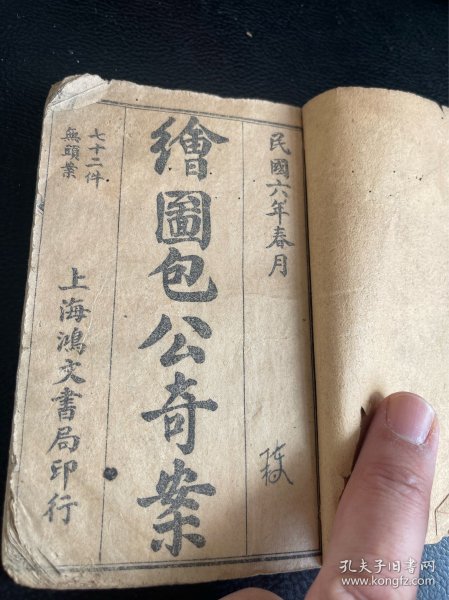 民國六年春月
繪圖包公奇案
七十二件
無頭案
上海鴻文書局印行
孔夫子旧书网
www.kongfz.com